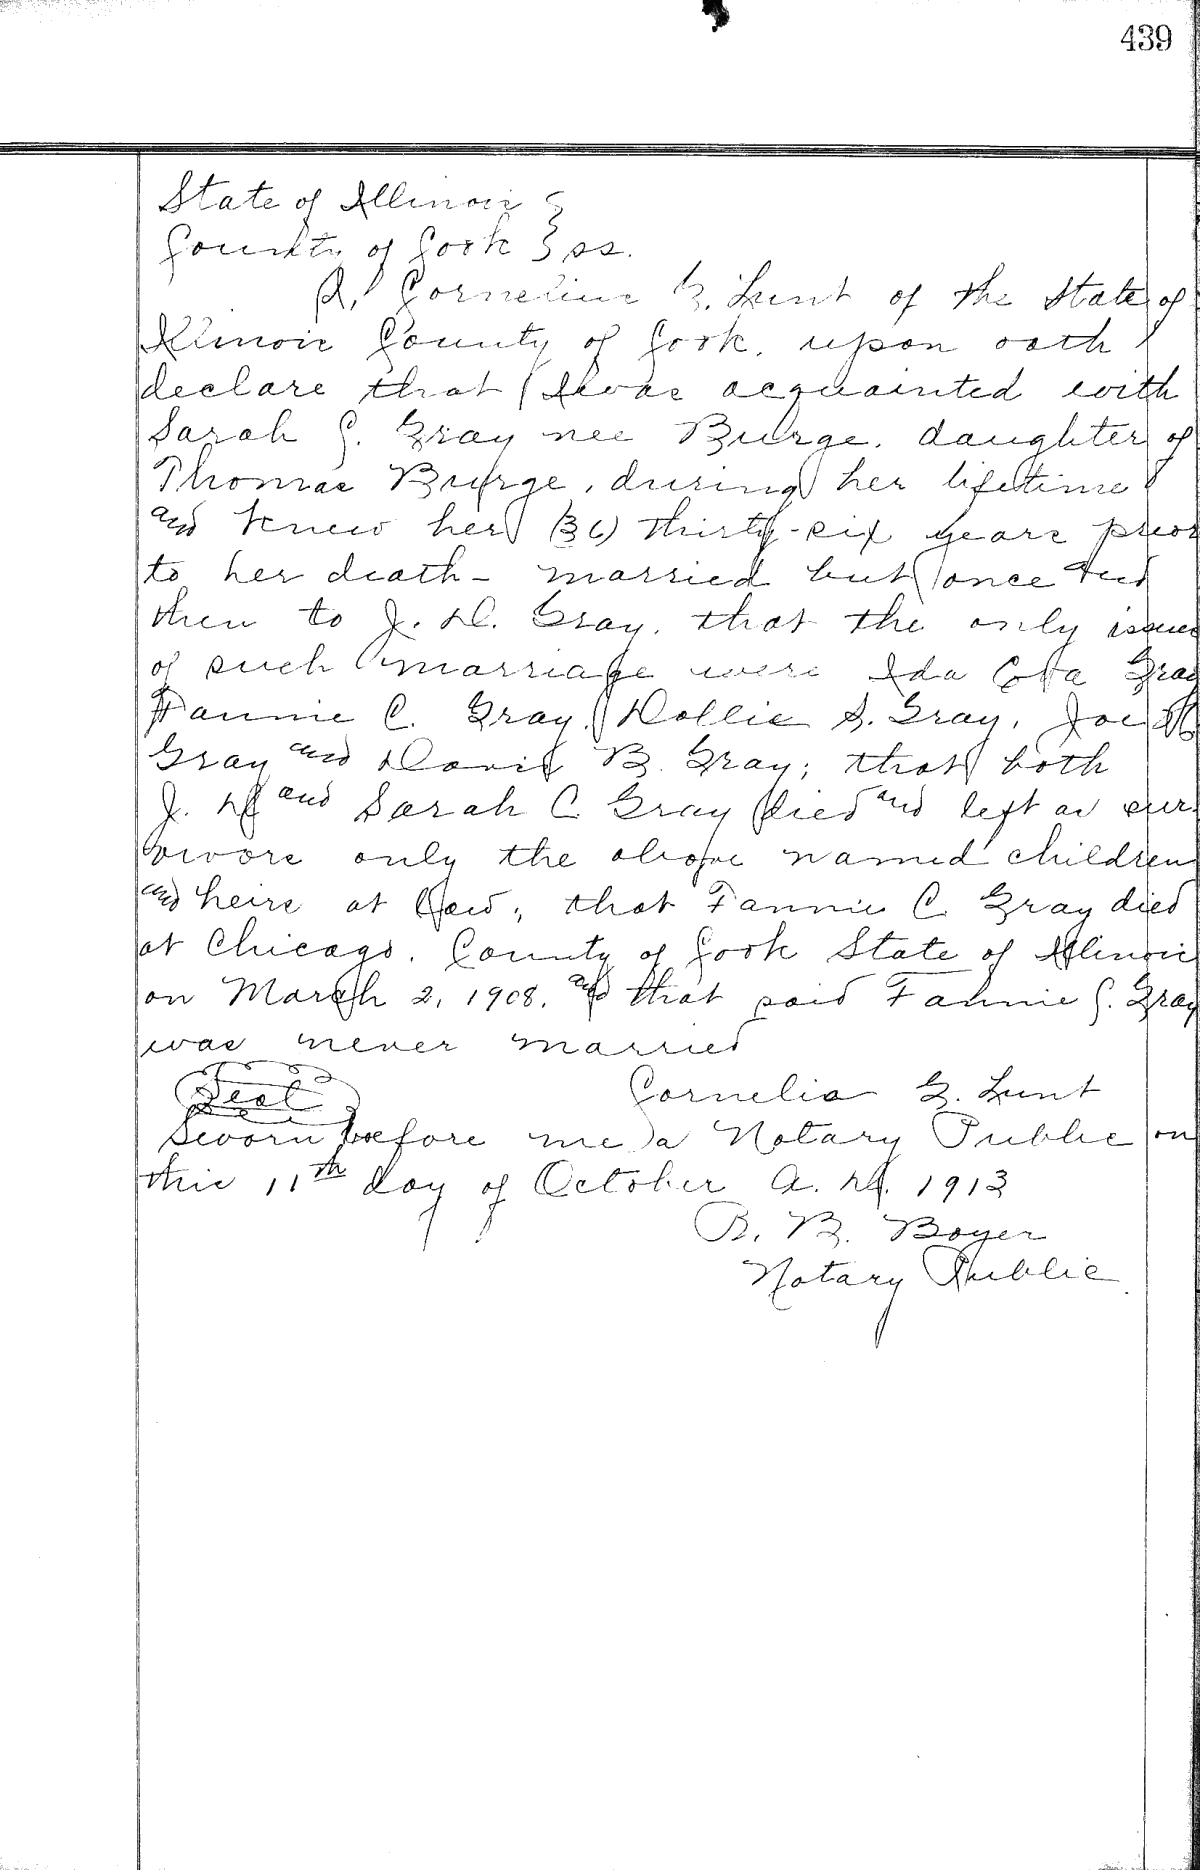 439
State of Illinois }
County of Cook } ss.
I, Cornelia G. Lunt of the State of
Illinois County of Cook, upon oath
declare that I was acquainted with
Sarah C. Gray nee Burge, daughter of
Thomas Burge, during her lifetime
and knew her (36) thirty-six years prior
to her death - married but once and
then to J. D. Gray, that the only issue
of such marriage were Ida Gray
Fannie C. Gray, Dollie S. Gray, Joe
Gray and David B. Gray; that both
J. D. and Sarah C Gray died and left as sur-
vivors only the above named children
and heirs at law; that Fannie C. Gray died
at Chicago, County of Cook State of Illinois
on March 2, 1908, and that said Fannie C. Gray
was never married
Seal Cornelia G. Lunt
Sworn before me a Notary Public on
this 11th day of October A. D. 1913
B. B. Boyer
Notary Public